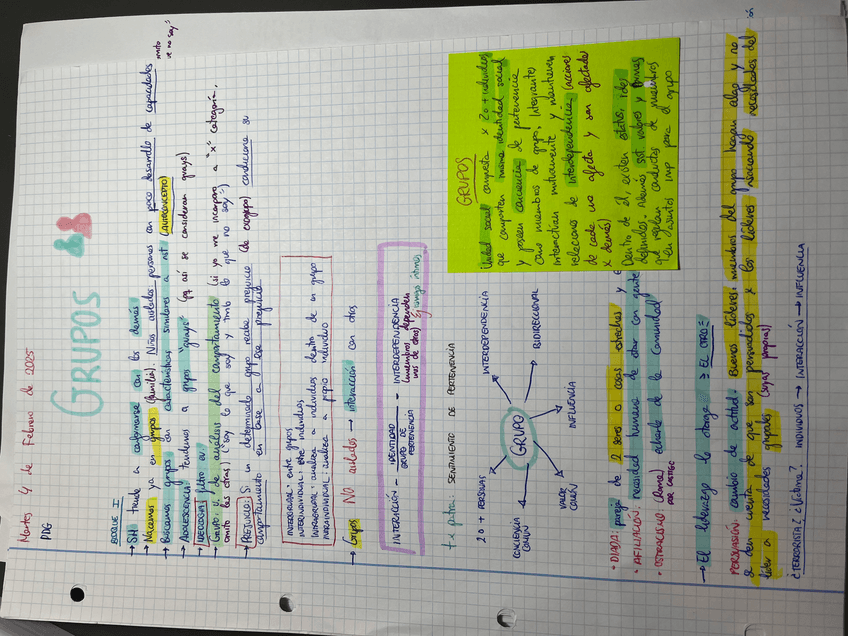 Martes 4 de Febrero de 2025
PDG
GRUPOS
BLOQUE I
→ SH tiende a conformarse con los demás
→ Nacemos ya en grupos (familia). Niños aislados personas con poco desarrollo de capacidades
→ Buscamos grupos con características similares a mí (AUTOCONCEPTO)
→ ADOLESCENCIA: tendemos a grupos "guays" (pq así se consideran guays)
→ IDEOLOGÍA filtro
→ Grupo: u. de análisis del comportamiento (si yo me incorporo a "x" categoría,
omito las otras) ("soy lo que soy y tmb lo que no soy")
→ PREJUICIO: Si un determinado grupo recibe prejuicio (de exogrupo) condiciona su
comportamiento en base a ese prejuicio
INTERGRUPAL: entre grupos
INTERINDIVIDUAL: entre individuos
INTRAGRUPAL: analiza a individuos dentro de un grupo
INTRAINDIVIDUAL: analiza a propio individuo
→ Grupos No aislados → interacción con otros
INTERACCIÓN – IDENTIDAD – INTERDEPENDENCIA
GRUPO DE PERTENENCIA
(miembros dependen unos de otros)
SENTIMIENTO DE PERTENENCIA
GRUPO
2 o + PERSONAS
INTERDEPENDENCIA
BIDIRECCIONAL
INFLUENCIA
COMÚN
CONCIENCIA COMÚN
GRUPOS
Unidad social compuesta x 2 o + individuos
que comparten misma identidad social
y poseen conciencia de pertenencia
como miembros de grupo. Integrantes
interactúan mutuamente y mantienen
relaciones de interdependencia (acciones
de cada uno afecta y son afectadas
x demás)
Dentro de él existen estatus, roles
definidos. Además sist valores y normas
que regulan conductas de miembros
en asuntos imp para el grupo
• DIADA: pareja de 2 seres o cosas estrechas y
• AFILIACIÓN: necesidad humana de estar con gente
• OSTRACISMO (Roma) echarte de la comunidad
POR CASTIGO
→ El liderazgo lo otorga → EL OTRO
PERSUASIÓN: cambio de actitud. Buenos líderes: miembros del grupo hagan algo y no
se den cuenta de que son persuadidos x los líderes asociando necesidades del
líder a necesidades grupales
¿TERRORISTA? ¿Víctima? INDIVIDUOS → INTERACCIÓN → INFLUENCIA